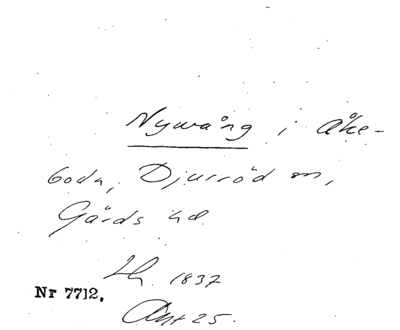 Nywång i Åke-
boda, Djurröd sn,
Gärds hd
Lh. 1837
Nr 7712.
Ant 25.